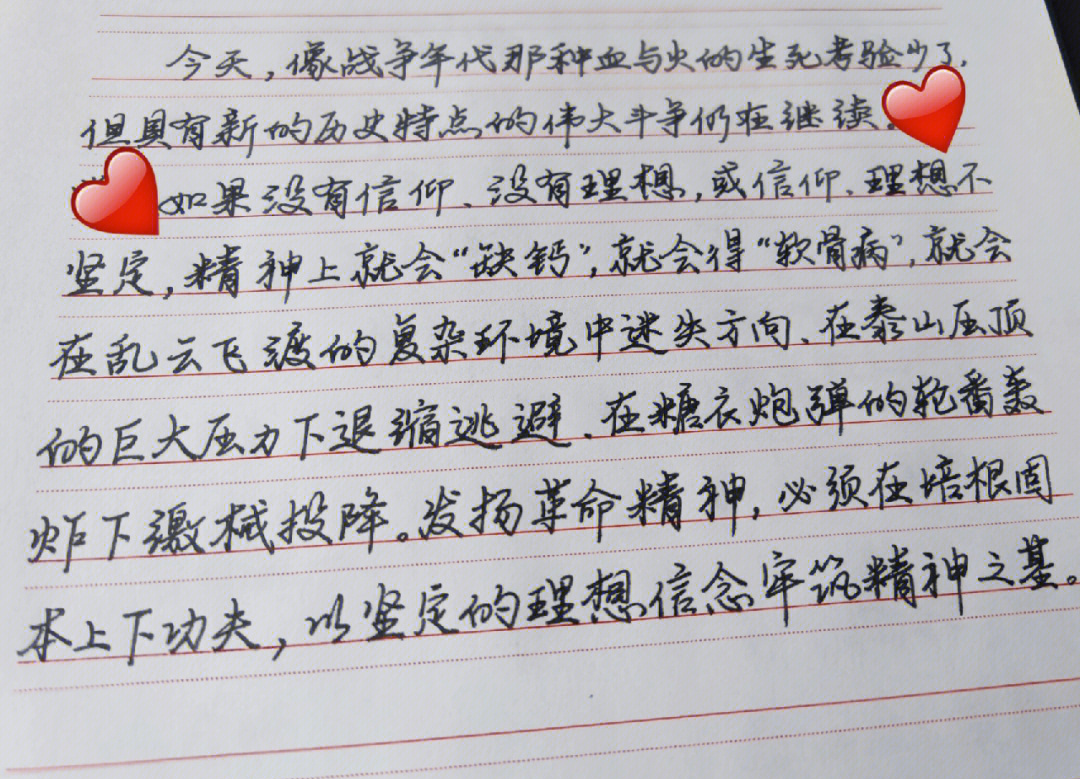 今天，像战争年代那种血与火的生死考验少了，
但具有新的历史特点的伟大斗争仍在继续。
如果没有信仰、没有理想，或信仰、理想不
坚定，精神上就会“缺钙”，就会得“软骨病”，就会
在乱云飞渡的复杂环境中迷失方向、在泰山压顶
的巨大压力下退缩逃避、在糖衣炮弹的轮番轰
炸下缴械投降。发扬革命精神，必须在培根固
本上下功夫，以坚定的理想信念牢筑精神之基。